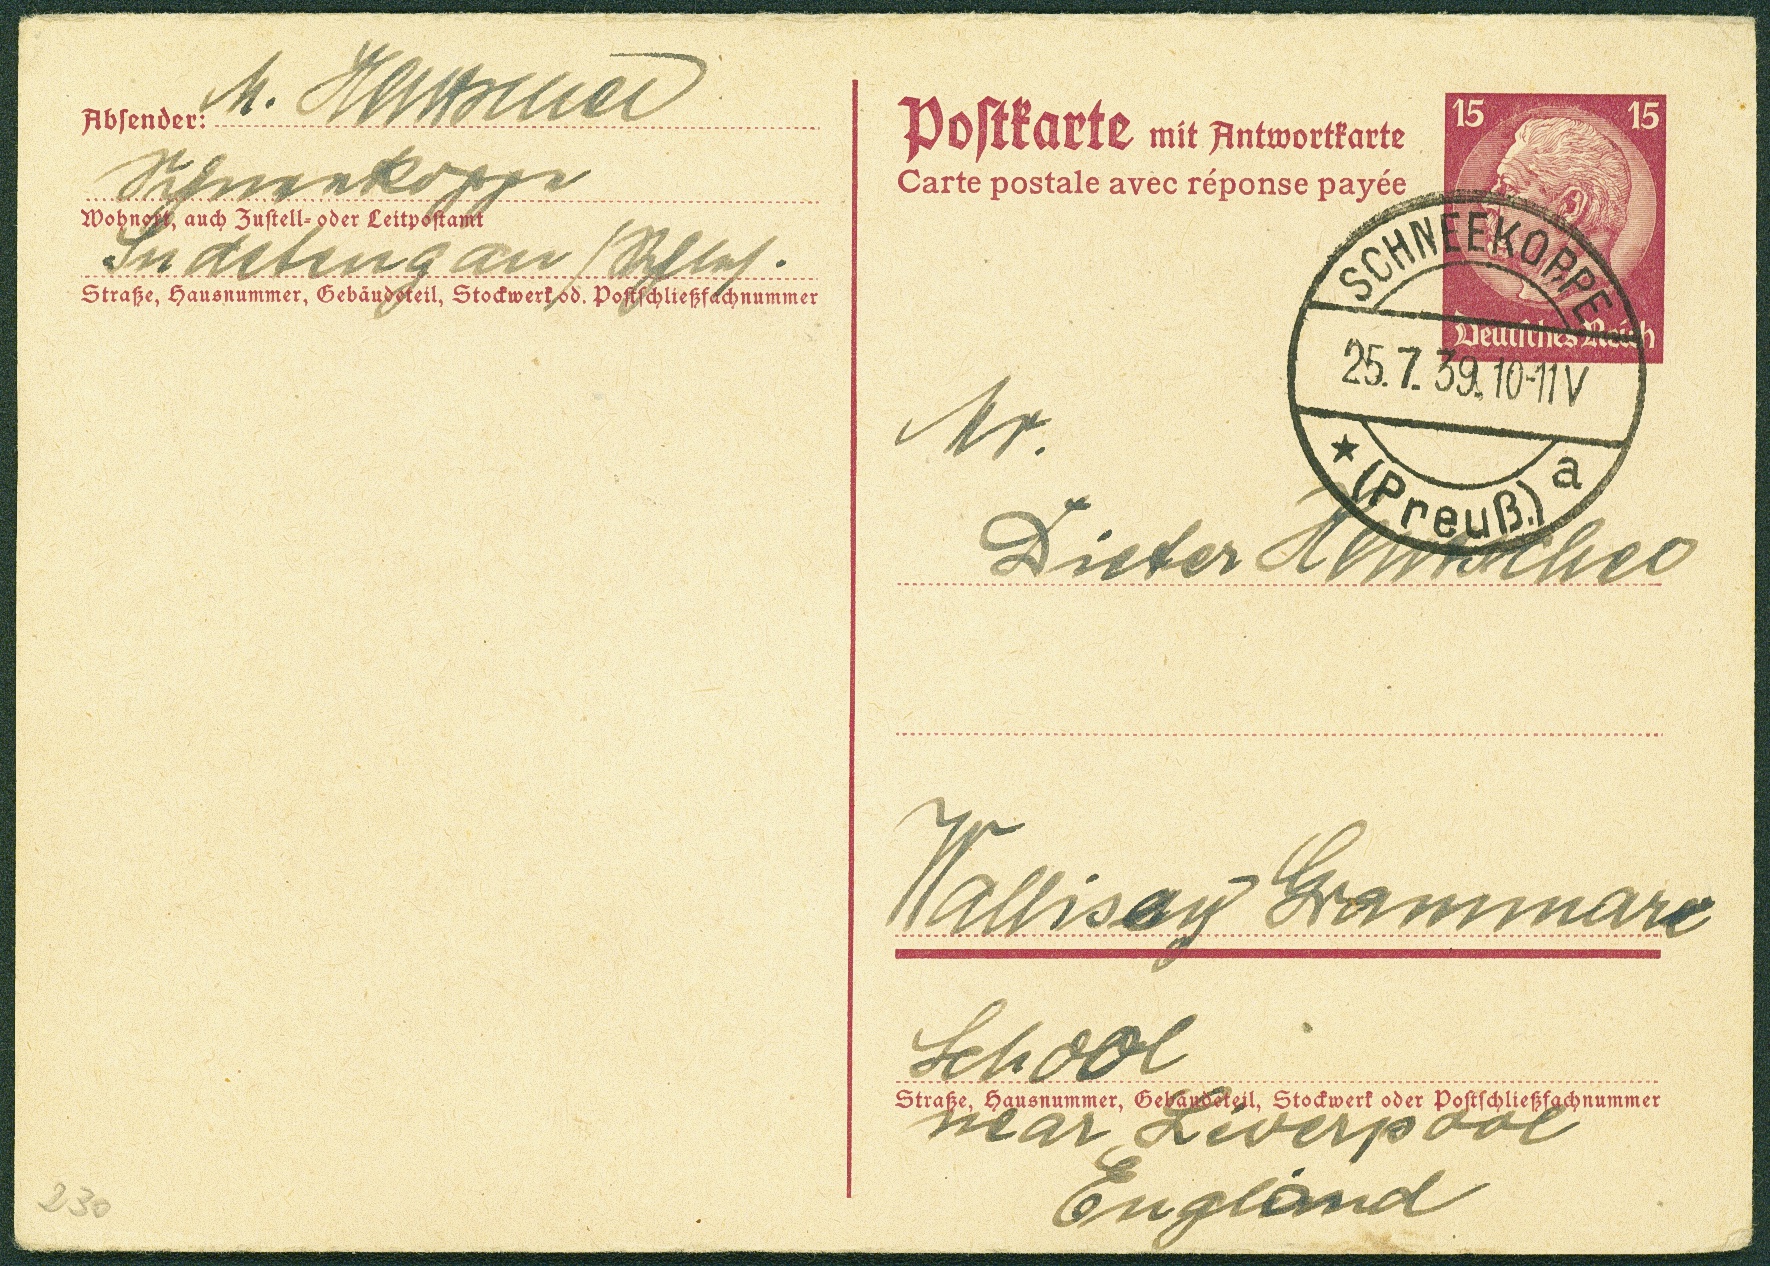 Absender: M.
Schneekoppe
Wohnort, auch Zustell- oder Leitpostamt
Sudetengau / Schles.
Straße, Hausnummer, Gebäudeteil, Stockwerk od. Postschließfachnummer
Postkarte mit Antwortkarte
Carte postale avec réponse payée
15 15
Deutsches Reich
SCHNEEKOPPE
25.7.39.10-11V
★ (Preuß.) a
Mr.
Dieter
Wallisey Grammare
School
Straße, Hausnummer, Gebäudeteil, Stockwerk oder Postschließfachnummer
near Liverpool
England
230